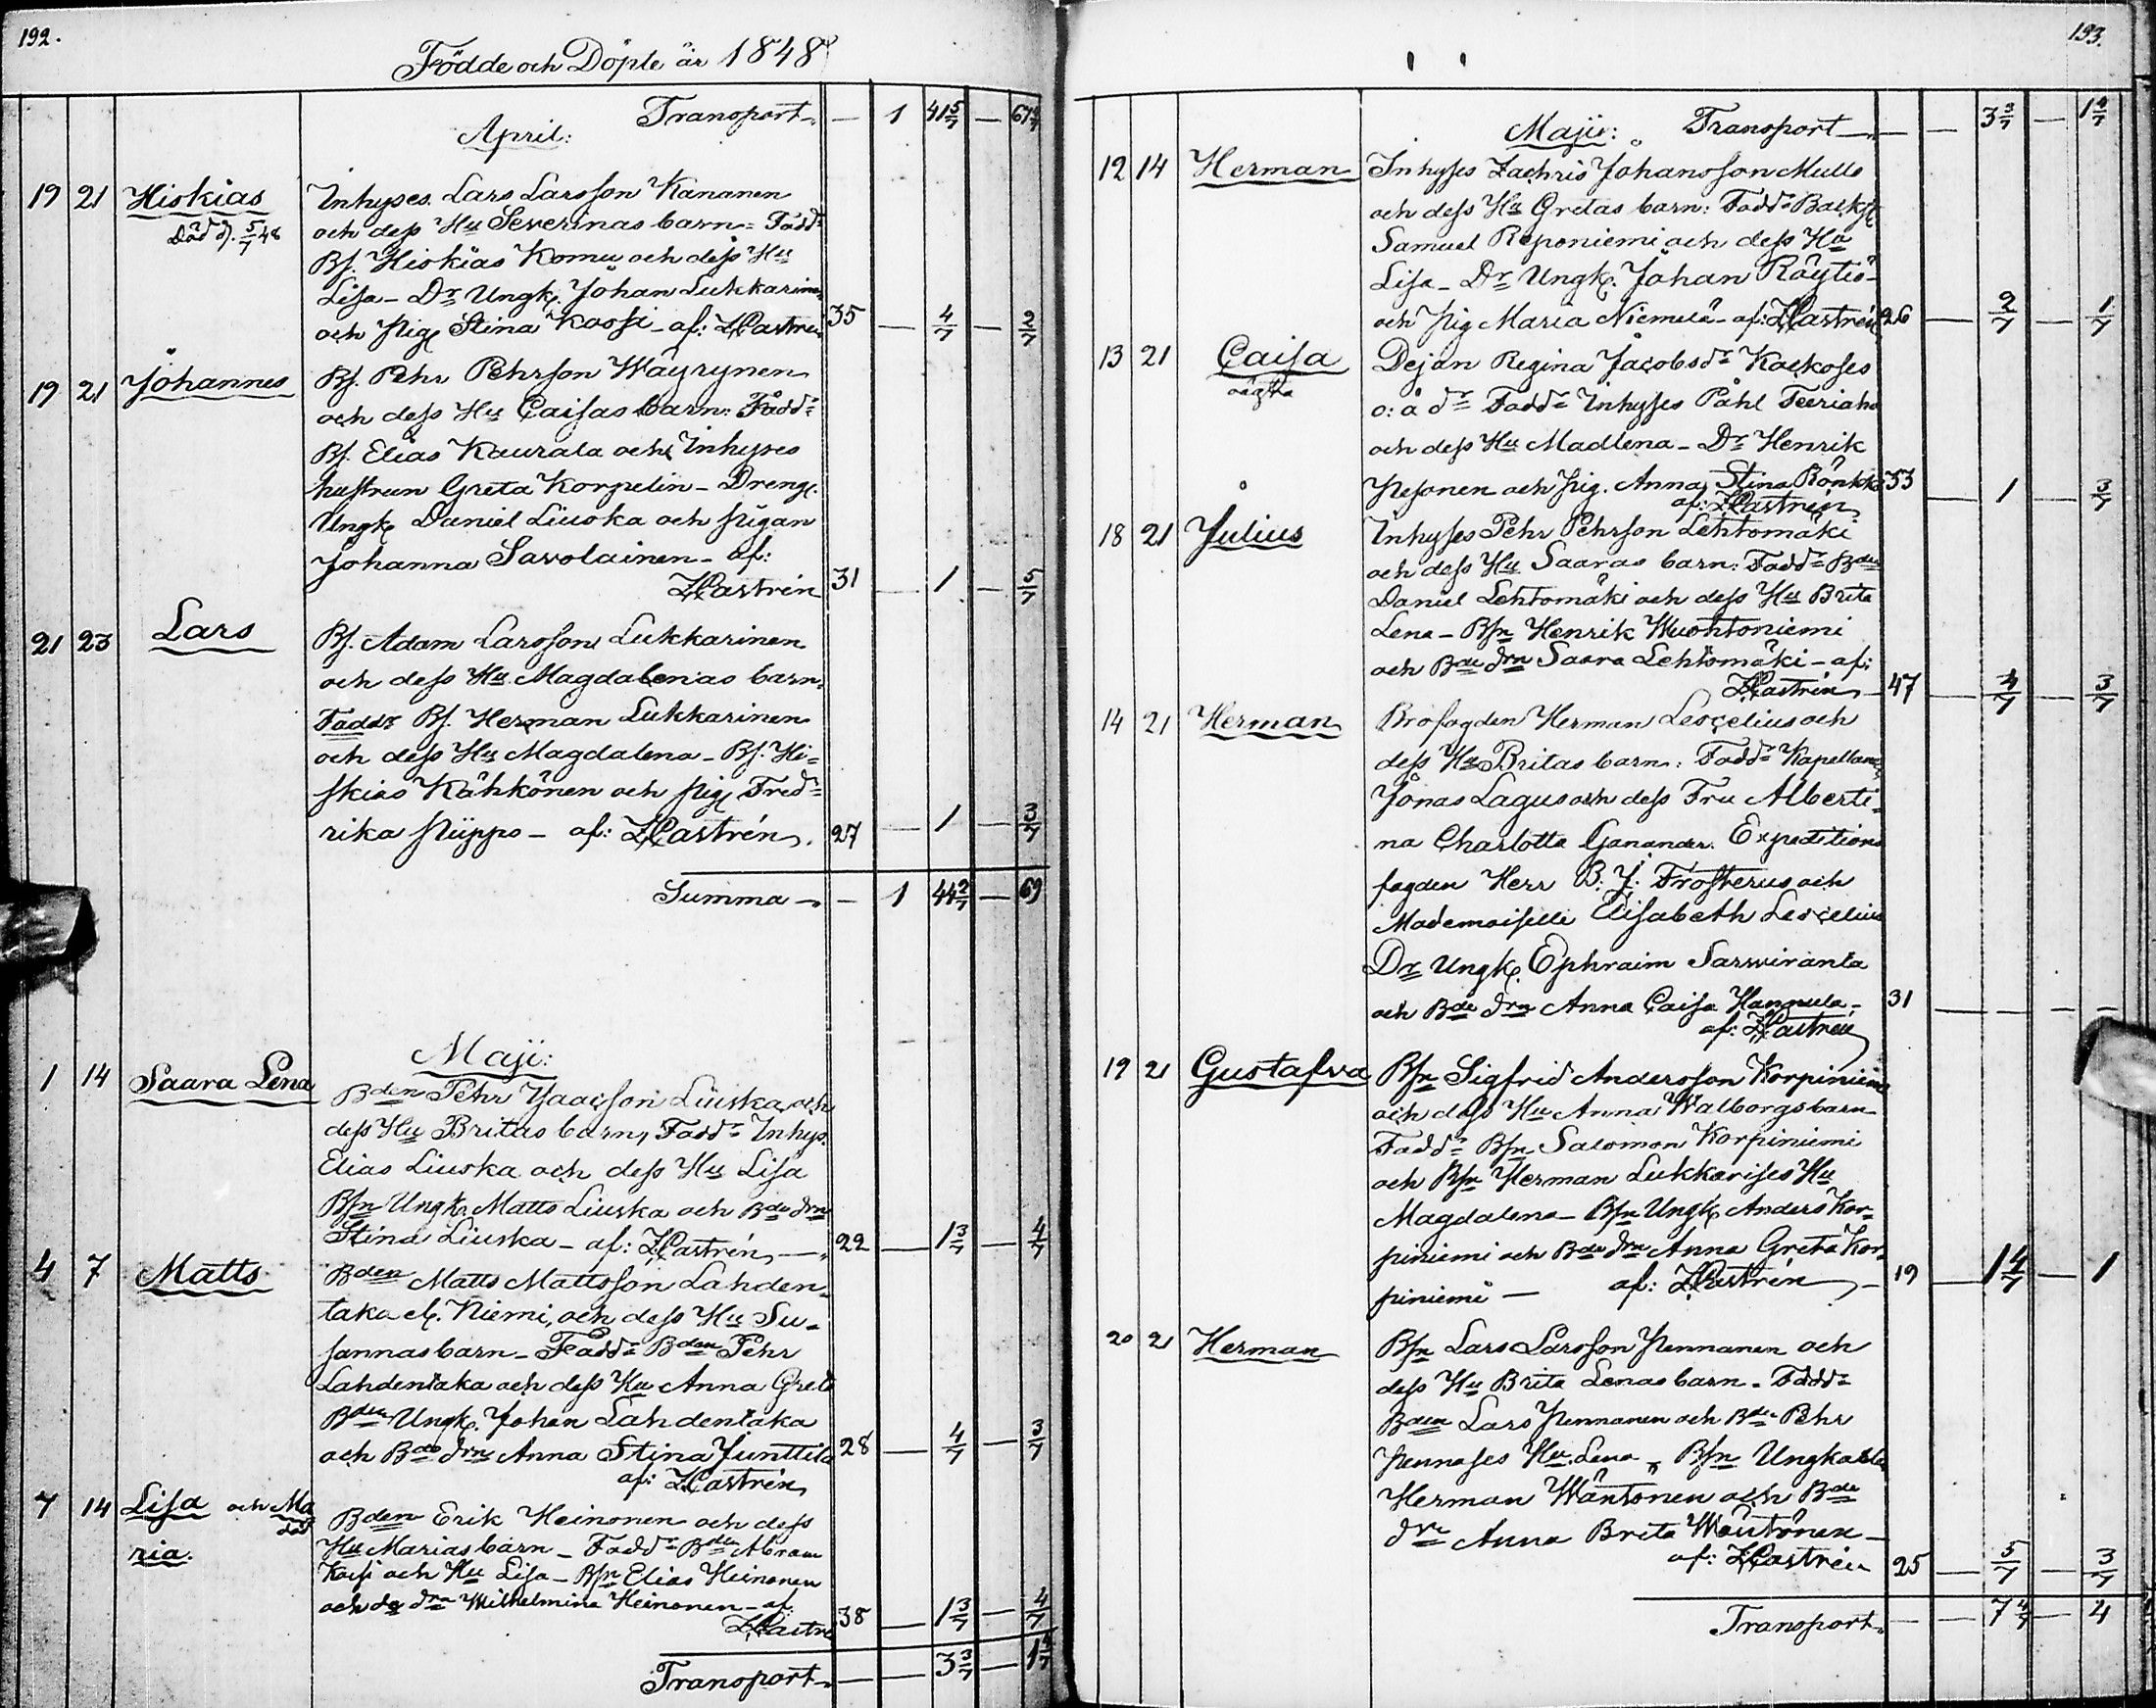 192.
Födde och Döpte år 1848
Transport — 1 41 5/7 — 67 4/7
April:
19 21 Hiskias Inhyses Lars Larsson Kananen
Död d. 5/7 48 och dess Hu Severinas barn. Fadd:
Bs. Hiskias Komu och dess Hu
Lisa – Dr Ungk. Johan Lukkarinen
och Pig. Stina Kossi – af: ZCastrén 35 — 4/7 — 2/7
19 21 Johannes Bs. Pehr Pehrson Wäyrynen
och dess Hu Caisas barn: Fadd:
Bs. Elias Kaurala och Inhyses
hustrun Greta Korpelin – Dreng.
Ungk. Daniel Liuska och Pigan
Johanna Savolainen – af:
ZCastrén 31 — 1 — 5/7
21 23 Lars Bs. Adam Larsson Lukkarinen
och dess Hu Magdalenas barn.
Faddr Bs. Herman Lukkarinen
och dess Hu Magdalena – Bs. Hi=
skias Kähkönen och Pig. Fred=
rika Piippo – af: ZCastrén. 27 — 1 — 3/7
Summa — 1 44 2/7 — 69
Maji:
1 14 Saara Lena Bden Pehr Isacsson Liuska och
dess Hu Britas barn, Fadd: Inhys.
Elias Liuska och dess Hu Lisa
Bsn Ungk. Matts Liuska och Bde drn
Stina Liuska – af: ZCastrén — 22 — 1 3/7 — 4/7
4 7 Matts Bden Matts Mattsson Lahden=
taka el. Niemi, och dess Hu Su=
sannas barn – Fadd: Bden Pehr
Lahdentaka och dess Hu Anna Greta
Bden Ungk. Johan Lahdentaka
och Bde drn Anna Stina Junttila 28 — 4/7 — 3/7
af: ZCastrén
7 14 Lisa och Ma Bden Erik Heinonen och dess
död
ria. Hu Marias barn – Fadd: Bden Abram
och Hu Lisa – Bsn Elias Heinonen
och dra Wilhelmina Heinonen – af
ZCastré 38 — 1 3/7 — 4/7
Transport — — 3 3/7 — 1 4/7
193.
Maji: Transport — — 3 3/7 — 1 4/7
12 14 Herman Inhyses Zachris Johansson Mulls
och dess Hu Gretas barn: Fadd:
Samuel Reponiemi och dess Hu
Lisa – Dr Ungk. Johan Räytiö –
och Pig Maria Niemelä – af: ZCastrén 26 — 2/7 — 1/7
13 21 Caisa Dejan Regina Jacobsdr Kackoses
oägta o: ä dr Fadd: Inhyses Påhl Teeriaho
och dess Hu Madlena – Dr Henrik
Pesonen och Pig. Anna Stina Rönkkö 53 — 1 — 3/7
af: ZCastrén
18 21 Julius Inhyses Pehr Pehrson Lehtomäki
och dess Hu Saaras barn: Fadd: Bden
Daniel Lehtomäki och dess Hu Brita
Lena – Bsn Henrik Wuohtoniemi
och Bde drn Saara Lehtomäki – af:
ZCastrén – 47 — 4/7 — 3/7
14 21 Herman Brofogden Herman Lescelius och
dess Hu Britas barn: Fadd: Kapellan
Jonas Lagus och dess Fru Alberti=
na Charlotta Ganander. Expeditions
fogden Herr B. J. Frosterus och
Mademoiselle Elisabeth Lescelius
Dr Ungk. Ephraim Sarwiranta
och Bde drn Anna Caisa Hannula – 31 — — — —
af: ZCastrén
19 21 Gustafva Bsn Sigfrid Andersson Korpiniemi
och dess Hu Anna Walborgs barn
Fadd: Bsn Salomon Korpiniemi
och Bsn Herman Lukkarises Hu
Magdalena – Bsn Ungk. Anders Kor=
piniemi och Bde drn Anna Greta Kor=
piniemi — af: ZCastrén – 19 — 1 4/7 — 1
20 21 Herman Bsn Lars Larsson Pennanen och
dess Hu Brita Lenas barn. Fadd:
Bden Lars Pennanen och Bde Pehr
Pennases Hu Lena – Bsn Ungkarlen
Herman Wäntönen och Bde
drn Anna Brita Wäntönen –
af: ZCastrén 25 — 5/7 — 3/7
Transport — — 7 4/7 — 4